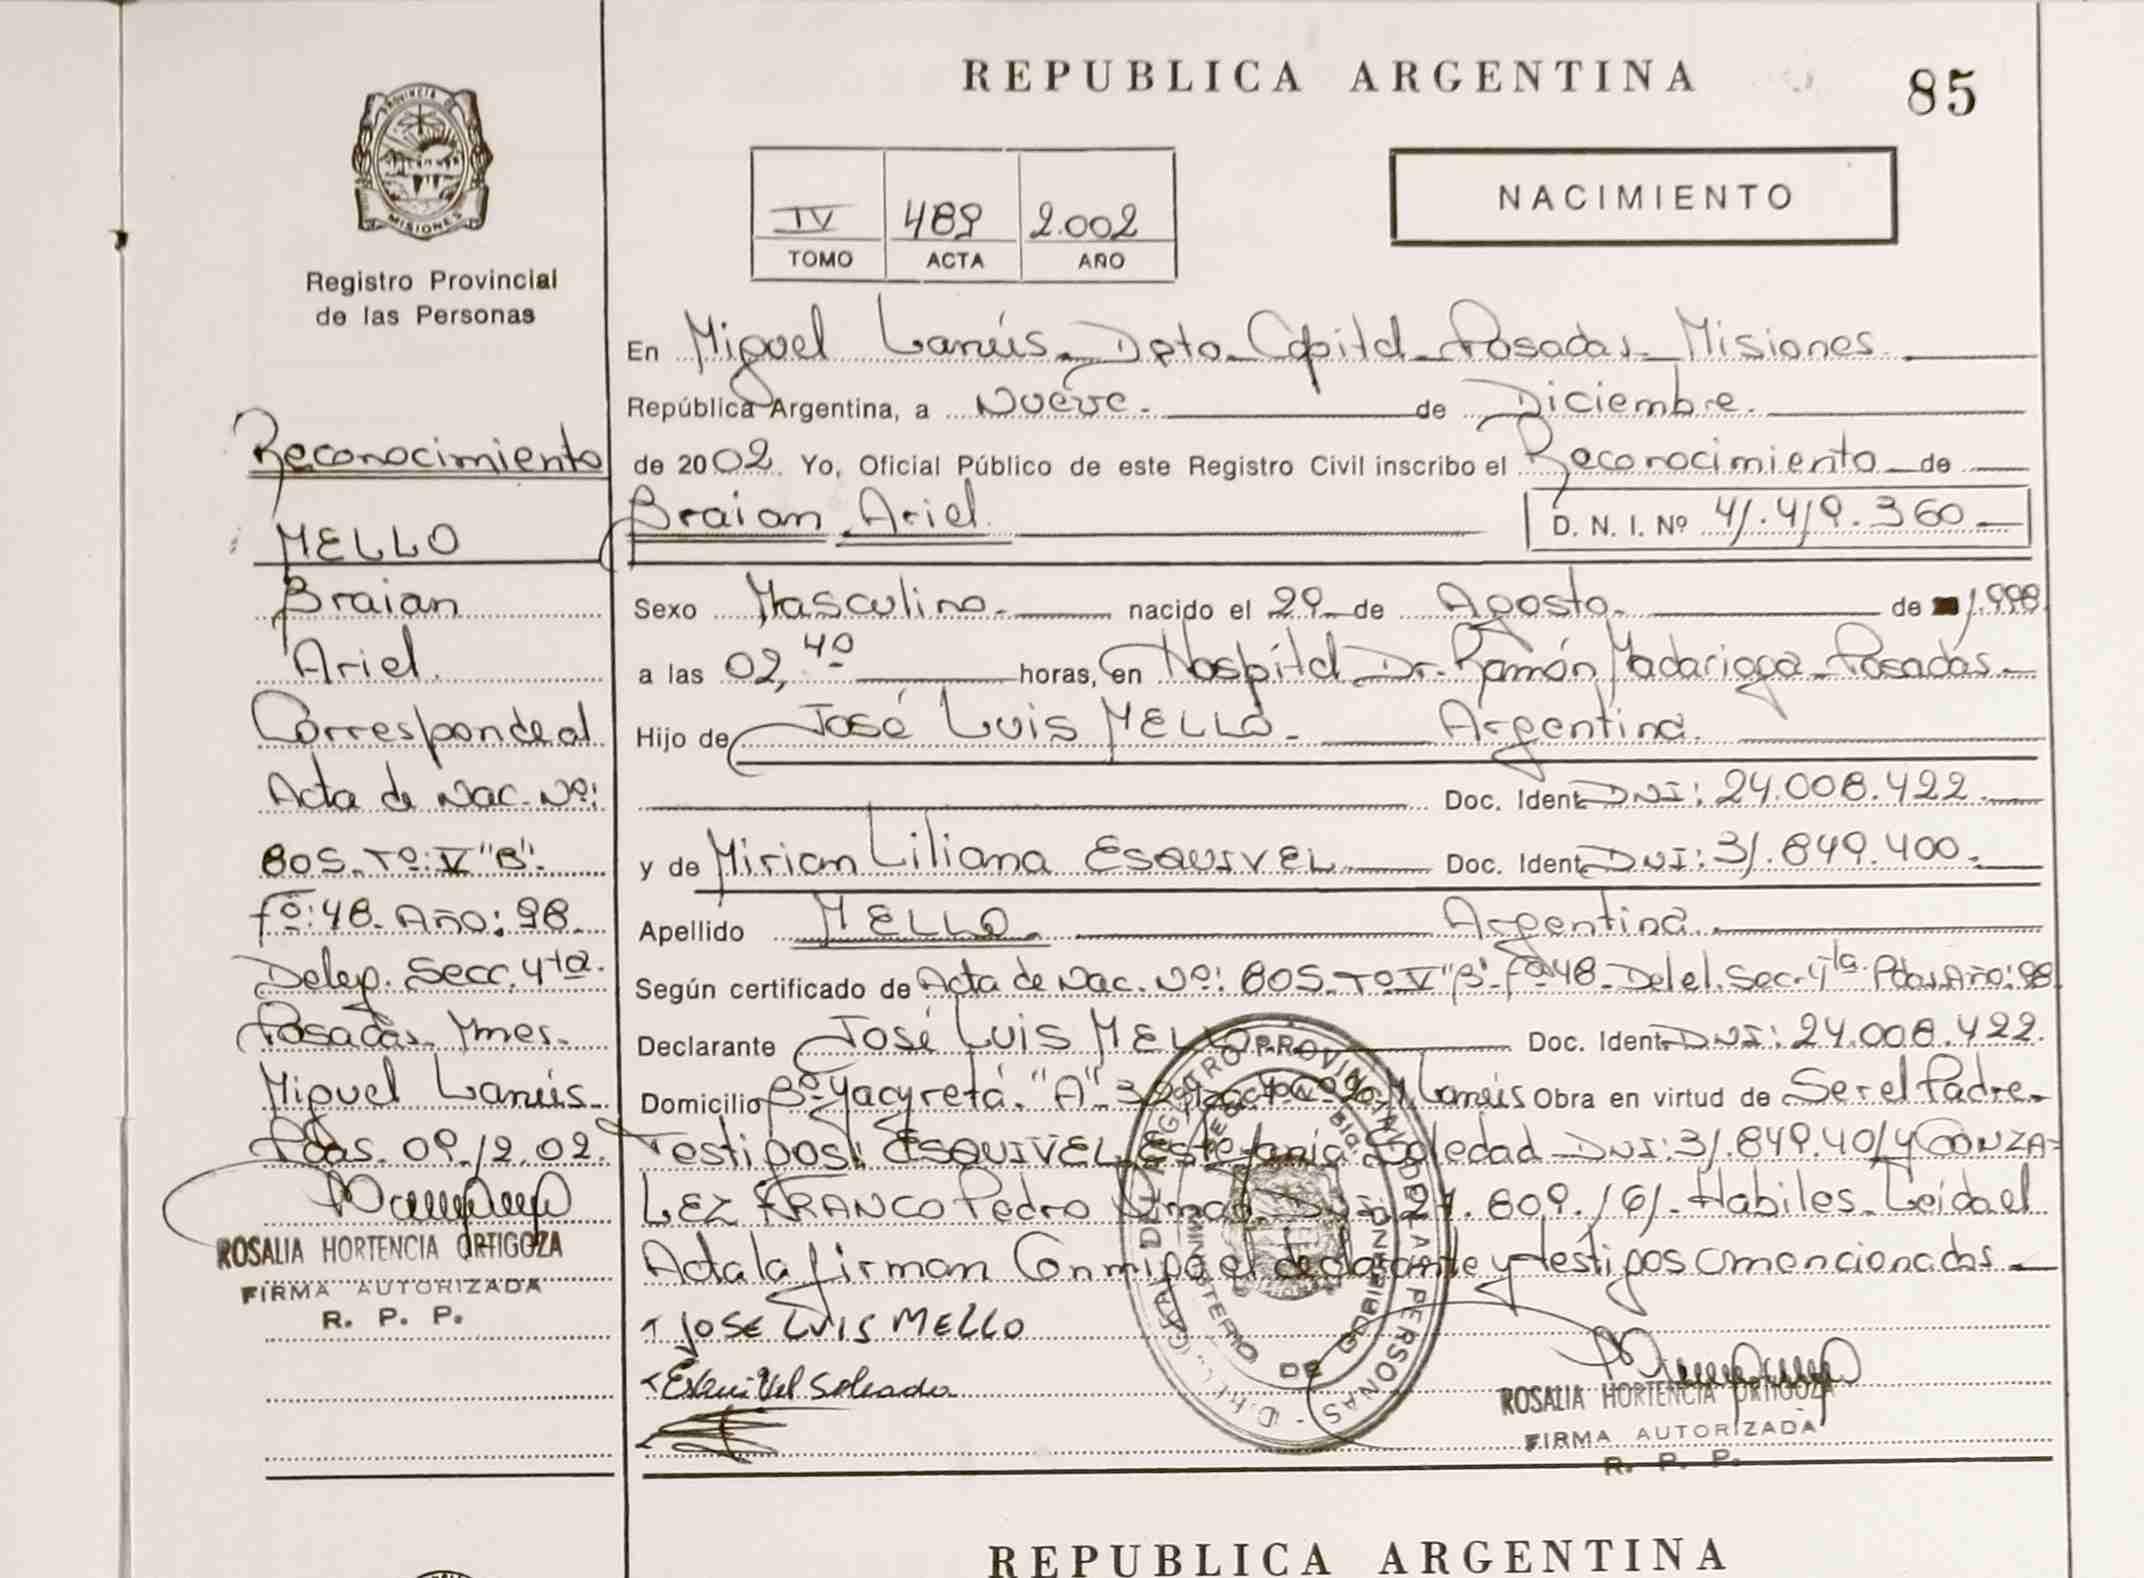 REPUBLICA ARGENTINA
85
PROVINCIA DE
MISIONES
Registro Provincial
de las Personas
IV 489 2.002
TOMO ACTA AÑO
NACIMIENTO
Reconocimiento
MELLO
Braian
Ariel
Corresponde al
Acta de Nac. Nº:
805. Tº: V "B".
Fº: 48. Año: 98.
Deleg. Secc. 4ta.
Posadas Mnes.
Miguel Lanús
Pdas. 09.12.02.
ROSALIA HORTENCIA ORTIGOZA
FIRMA AUTORIZADA
R. P. P.
En Miguel Lanús Dpto Capital Posadas Misiones
República Argentina, a Nueve de Diciembre
de 2002. Yo, Oficial Público de este Registro Civil inscribo el Reconocimiento de
Braian Ariel D. N. I. Nº 41.419.360
Sexo Masculino nacido el 29 de Agosto de 1.998
a las 02,40 horas, en Hospital Dr. Ramón Madariaga Posadas
Hijo de José Luis MELLO Argentina
Doc. Ident. DNI: 24.008.422
y de Miriam Liliana ESQUIVEL Doc. Ident. DNI: 31.849.400
Apellido MELLO Argentina
Según certificado de Acta de Nac. Nº: 805. Tº V "B" Fº 48 Sec. 4ta Pdas Año: 98
Declarante José Luis MELLO Doc. Ident. DNI: 24.008.422
Domicilio Bº Yacyretá "A" M. Lanús Obra en virtud de Ser el Padre
Testigos: ESQUIVEL Estefanía Soledad DNI: 31.849.401 y GONZA=
LEZ FRANCO Pedro .609.161 Habiles Leida el
Acta la firman Conmigo el declarante y testigos mencionados
JOSE LUIS MELLO
Esquivel Soledad
ROSALIA HORTENCIA ORTIGOZA
FIRMA AUTORIZADA
R. P. P.
REGISTRO PROVINCIAL DE LAS PERSONAS
MINISTERIO DE GOBIERNO
REPUBLICA ARGENTINA